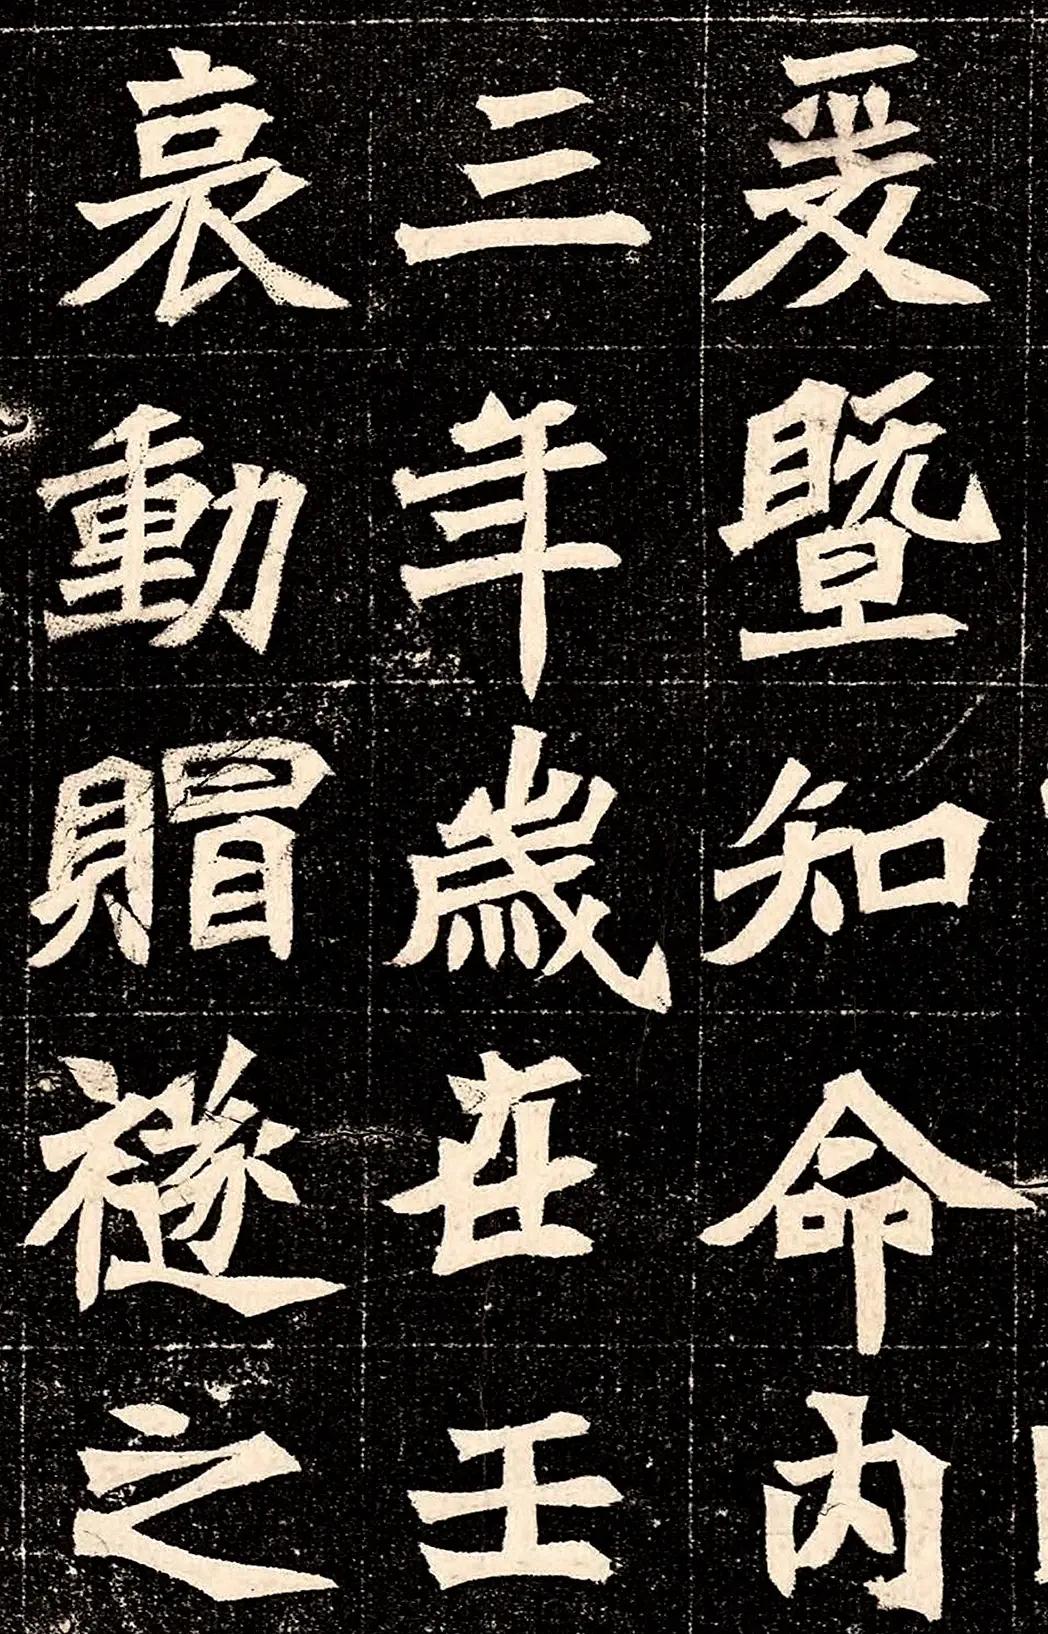 爰暨知命内
三年歲在壬
哀動賵襚之